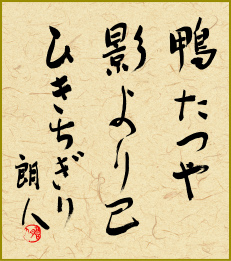 鴨たつや
影より己
ひきちぎり
朗人